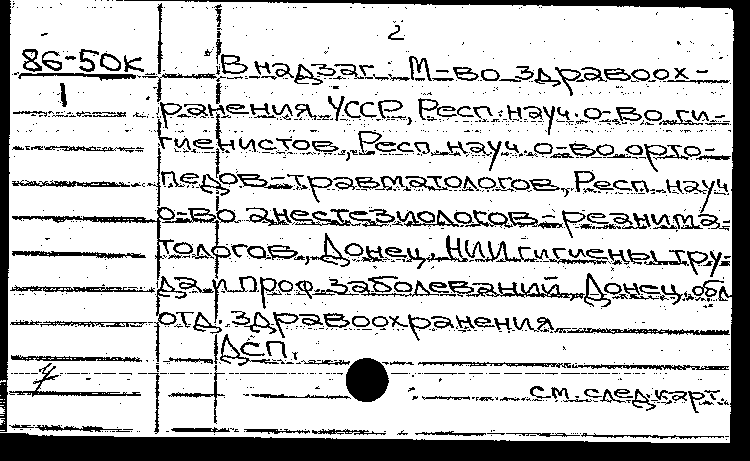 2
86-50к В надзаг.: М-во здравоох-
1 ранения УССР, Респ. науч. о-во ги-
гиенистов, Респ. науч. о-во орто-
педов-травматологов, Респ. науч.
о-во анестезиологов-реанима-
тологов, Донец. НИИ гигиены тру-
да и проф. заболеваний, Донец. обл.
отд. здравоохранения
ДСП.
см. след. карт.